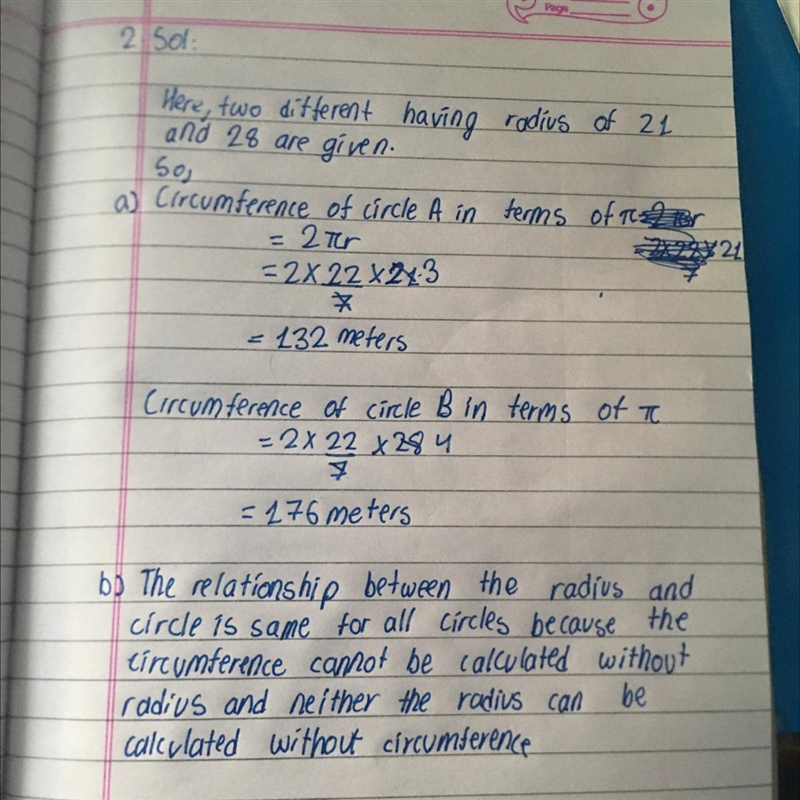 Page
2. Sol:
Here, two different having radius of 21
and 28 are given.
So,
a) Circumference of circle A in terms of π
= 2πr
= 2 × 22/7 × 21 3
= 132 meters
Circumference of circle B in terms of π
= 2 × 22/7 × 28 4
= 176 meters
b) The relationship between the radius and
circle is same for all circles because the
circumference cannot be calculated without
radius and neither the radius can be
calculated without circumference